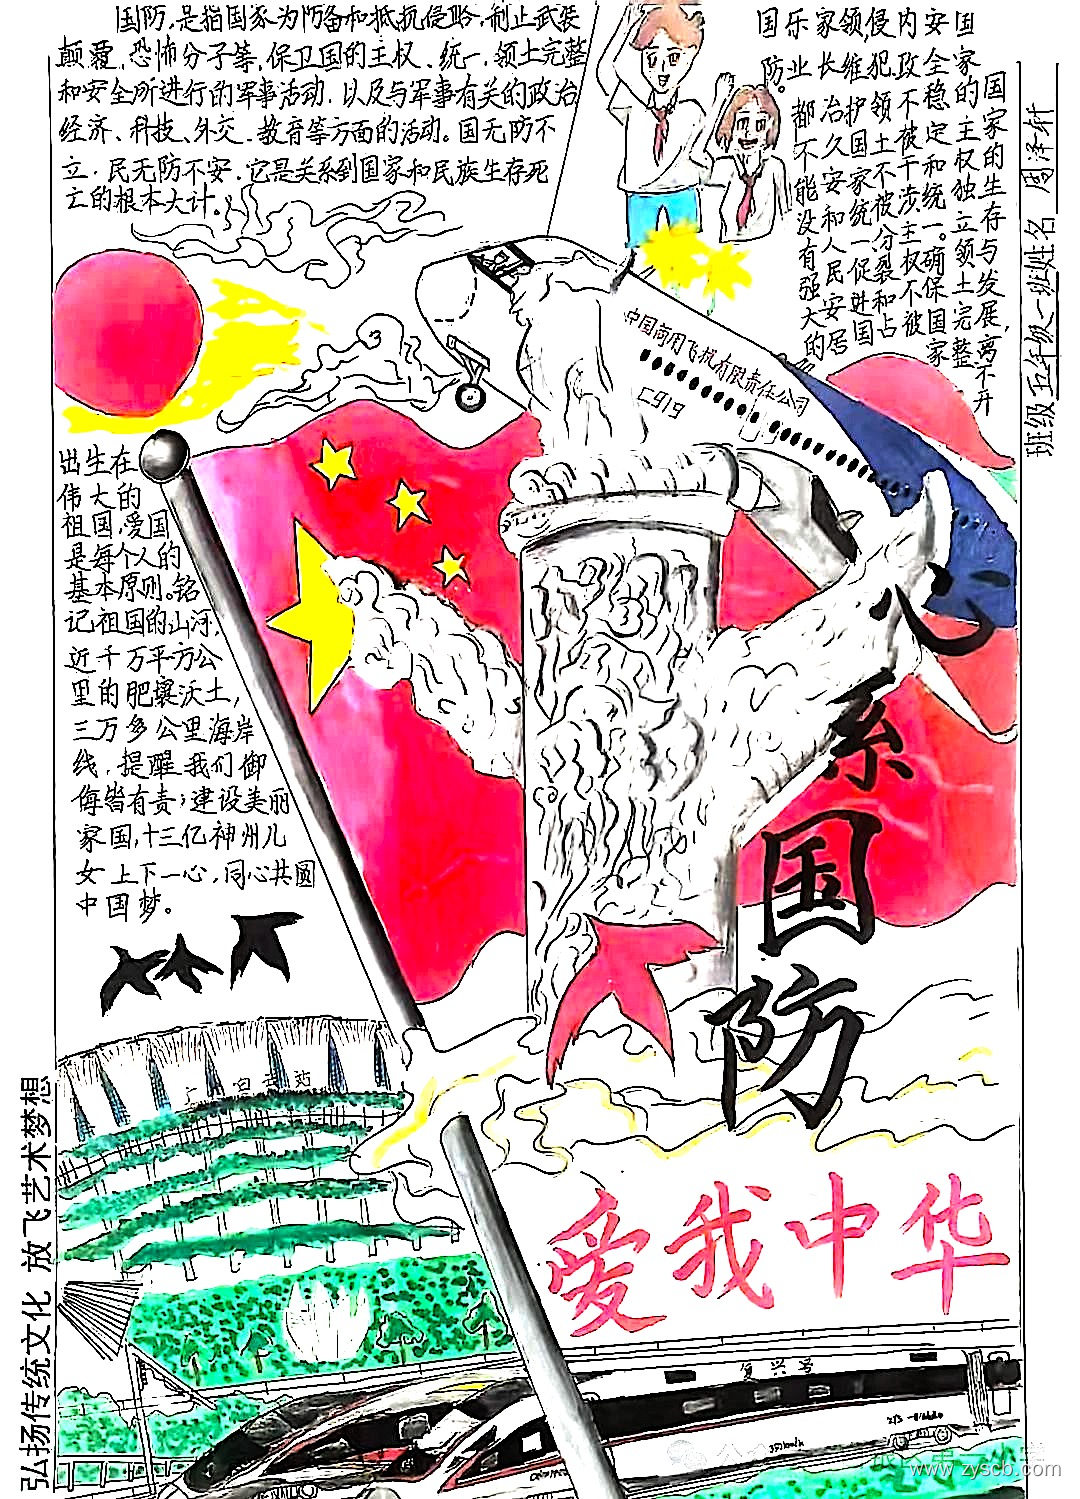 国防,是指国家为防备和抵抗侵略,制止武装
颠覆,恐怖分子等,保卫国的主权、统一,领土完整
和安全所进行的军事活动,以及与军事有关的政治
经济、科技、外交、教育等方面的活动。国无防不
立,民无防不安,它是关系到国家和民族生存死
亡的根本大计。
国家的生存与发展,离不开
国家的主权独立领土完整
安全稳定和统一。确保国家
内政不被干涉主权不被
侵犯,领土不被分裂和占
领,维护国家统一促进国
家长治久安和人民安居
乐业都不能没有强大的
国防。
班级 五年级一班 姓名 周泽轩
中国商用飞机有限责任公司
C919
出生在
伟大的
祖国,爱国
是每个人的
基本原则。铭
记祖国的山河,
近千万平方公
里的肥壤沃土,
三万多公里海岸
线,提醒我们御
侮皆有责;建设美丽
家国,十三亿神州儿
女上下一心,同心共圆
中国梦。
心系国防
爱我中华
弘扬传统文化 放飞艺术梦想
复兴号
350km/h
www.zyscb.com